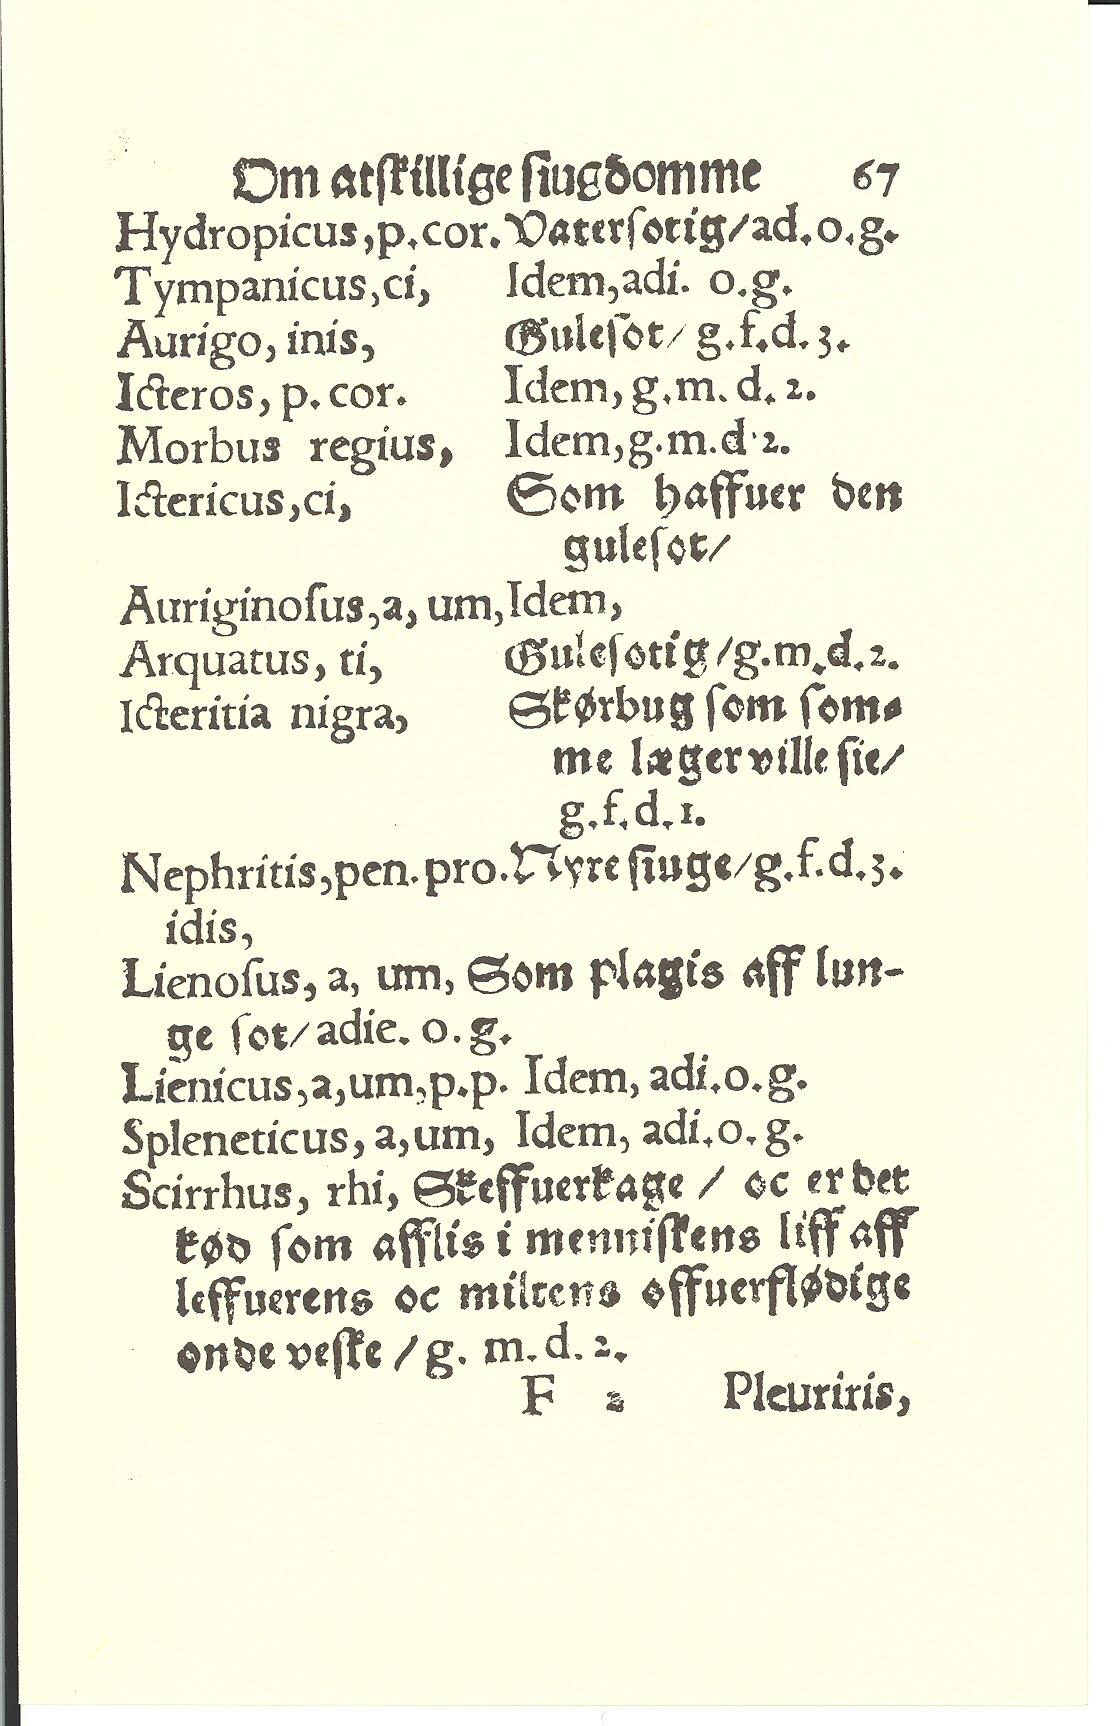 Om atskillige siugdomme 67
Hydropicus, p. cor. Vatersotig/ ad. o. g.
Tympanicus, ci, Idem, adi. o. g.
Aurigo, inis, Gulesot/ g. f. d. 3.
Icteros, p. cor. Idem, g. m. d. 2.
Morbus regius, Idem, g. m. d. 2.
Ictericus, ci, Som haffuer den
gulesot/
Auriginosus, a, um, Idem,
Arquatus, ti, Gulesotig/ g. m. d. 2.
Icteritia nigra, Skørbug som som-
me læger ville sie/
g. f. d. 1.
Nephritis, pen. pro. Nyre siuge/ g. f. d. 3.
idis,
Lienosus, a, um, Som plagis aff lun-
ge sot/ adie. o. g.
Lienicus, a, um, p. p. Idem, adi. o. g.
Spleneticus, a, um, Idem, adi. o. g.
Scirrhus, rhi, Skeffuerkage / oc er det
kød som afflis i menniskens liff aff
leffuerens oc miltens offuerflødige
onde veske / g. m. d. 2.
F 2 Pleuriris,